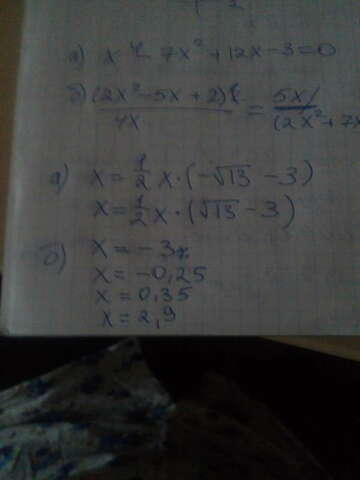 а) x⁴ - 7x² + 12x - 3 = 0
б) (2x² - 5x + 2)
4x
=
5x
(2x² + 7x
а) x = 1/2 x · (-√13 - 3)
x = 1/2 x · (√13 - 3)
б) x = -3
x = -0,25
x = 0,35
x = 2,9